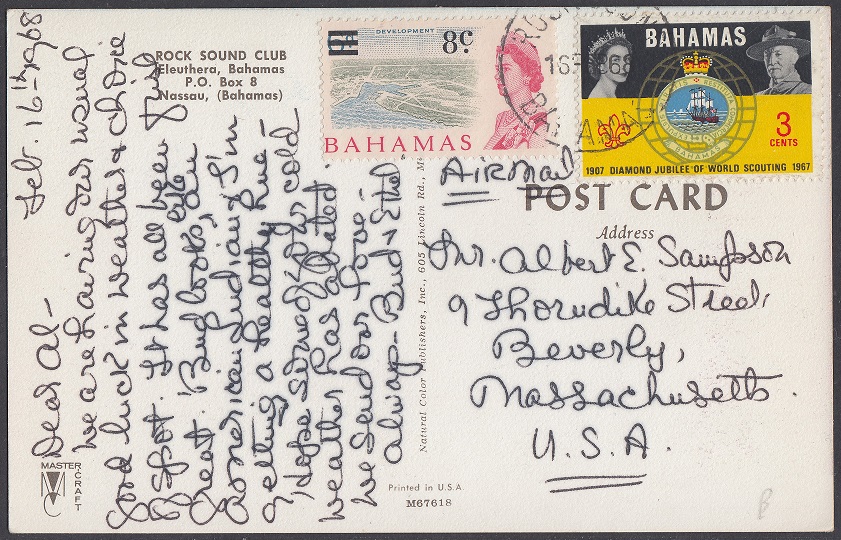 ROCK SOUND CLUB
Eleuthera, Bahamas
P.O. Box 8
Nassau, (Bahamas)
Feb. 16th 1968
Dear Al-
We are having our usual
good luck in weather & choice
of spot. It has all been just
great. Bud looks like an
American Indian, I'm
getting a healthy hue-
Hope some of your cold
weather has abated.
We send our love-
always- Bud & Ethel
MASTER
CRAFT
Natural Color Publishers, Inc., 605 Lincoln Rd., Mi
Printed in U.S.A.
M67618
DEVELOPMENT
8c
BAHAMAS
ROCK SOUND
16 FE 68
BAHAMAS
BAHAMAS
3
CENTS
1907 DIAMOND JUBILEE OF WORLD SCOUTING 1967
AIRMAIL
POST CARD
Address
Mr. Albert E. Sampson
9 Thorndike Street,
Beverly,
Massachusetts.
U.S.A.